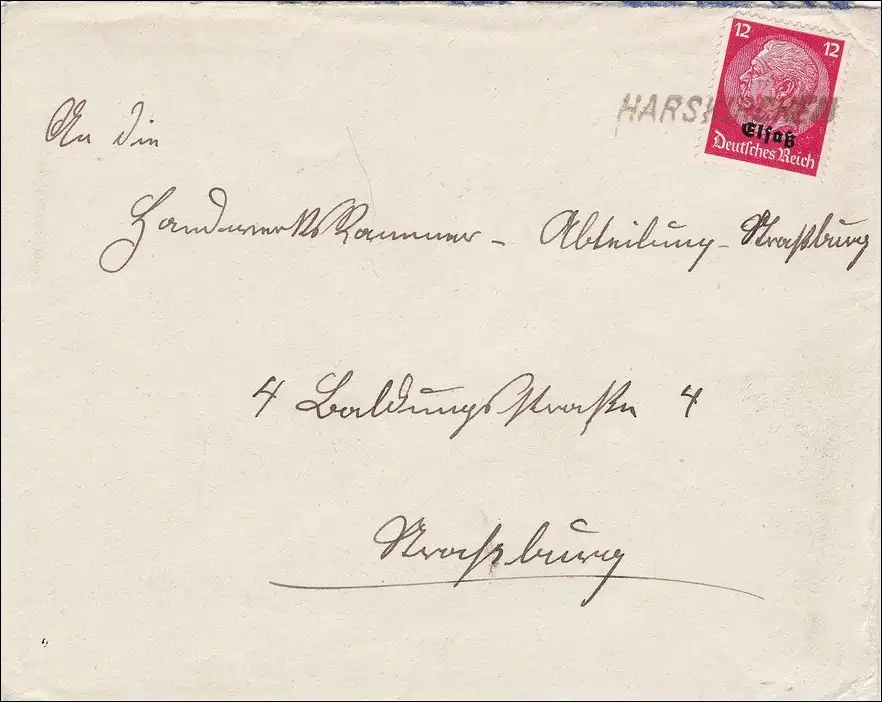 12 12
HARSKIRCHEN
Elsaß
Deutsches Reich
An die
Handwerkskammer - Abteilung - Straßburg
4 Baldungsstraße 4
Straßburg